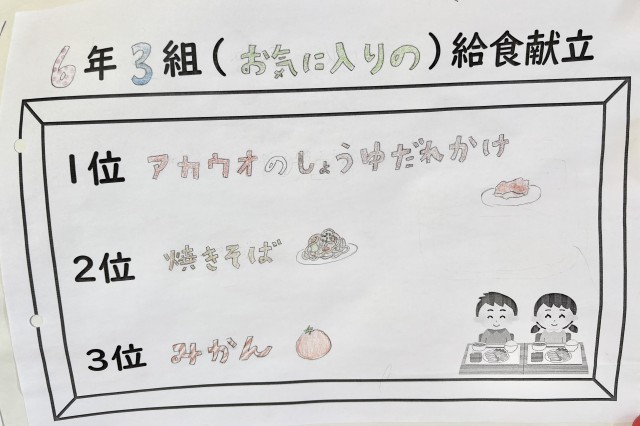 6年3組(お気に入りの)給食献立
1位 アカウオのしょうゆだれかけ
2位 焼きそば
3位 みかん